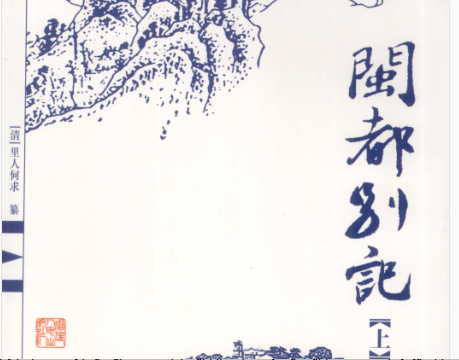 閩都别記
【上】
[清]里人何求 纂